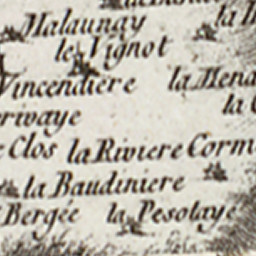 Malaunay
le Vignot
Vincendiere la Mena
erwaye la
Clos la Riviere Corm
la Baudiniere
Bergée la Pesotaye